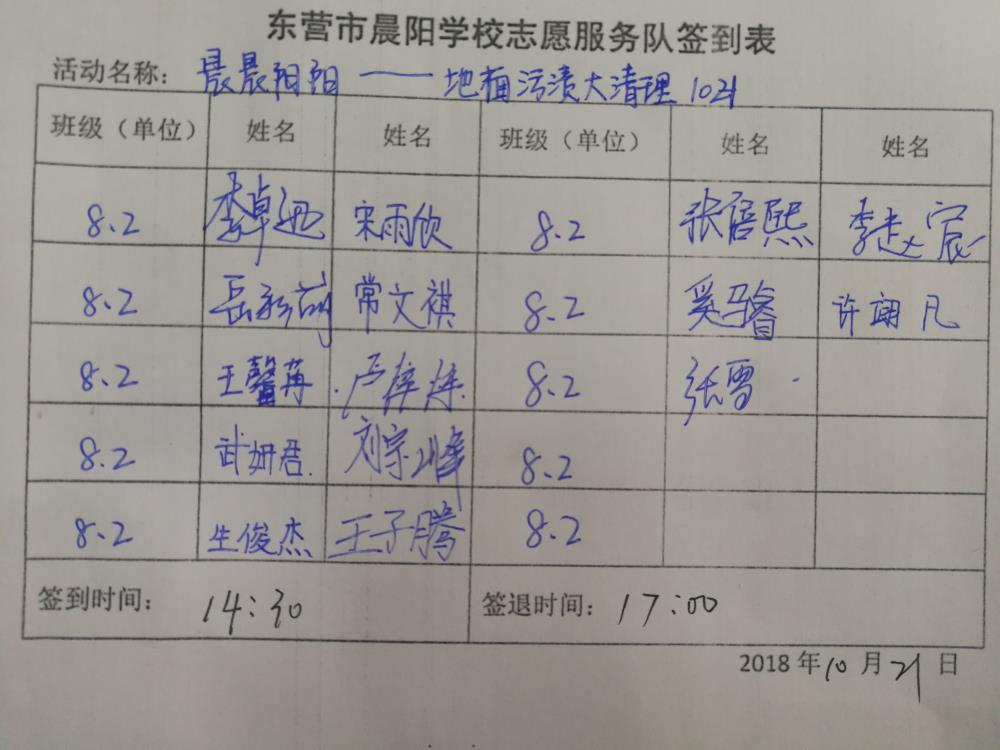 东营市晨阳学校志愿服务队签到表
活动名称：晨晨阳阳——地面污渍大清理 1021
班级（单位） 姓名 姓名 班级（单位） 姓名 姓名
8.2 李卓 宋雨欣 8.2 张倍熙 李 宸
8.2 岳 常文祺 8.2 奚马睿 许翊凡
8.2 王馨苒 卢梓 8.2 张雪
8.2 武妍君 刘宗峰 8.2
8.2 生俊杰 王子腾 8.2
签到时间：14:30 签退时间：17:00
2018年10月21日